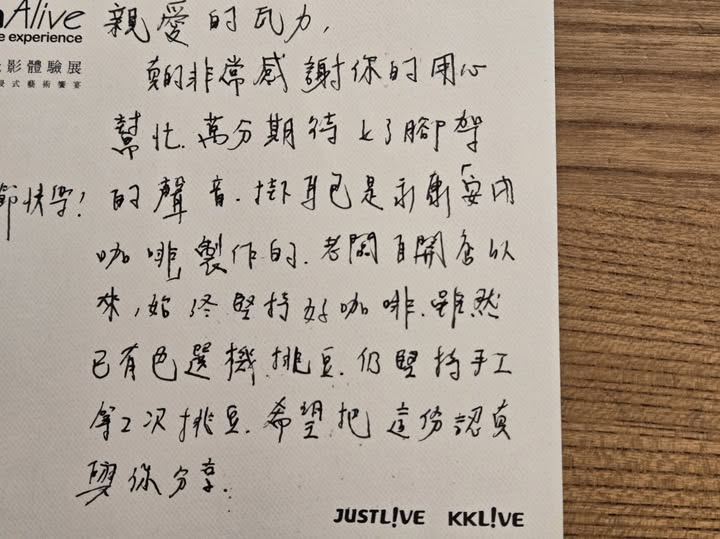 Alive
e experience
影體驗展
式藝術饗宴
節快樂!
親愛的瓦力,
真的非常感謝你的用心
幫忙.萬分期待上了腳架
的聲音.掛耳包是永康「安內
咖啡」製作的.老闆自開店以
來,始終堅持好咖啡.雖然
已有色選機挑豆.仍堅持手工
第2次挑豆.希望把這份認真
與你分享.
JUSTL!VE KKL!VE